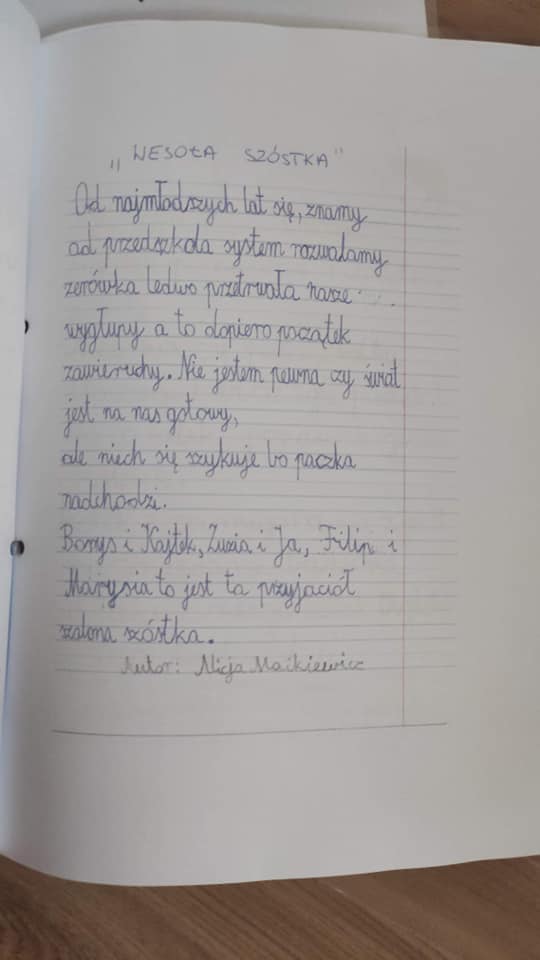 „WESOŁA SZÓSTKA"
Od najmłodszych lat się, znamy
od przedszkola system rozwalamy
zerówka ledwo przetrwała nasze
wygłupy a to dopiero początek
zawieruchy. Nie jestem pewna czy świat
jest na nas gotowy,
ale niech się szykuje bo paczka
nadchodzi.
Borys i Kajtek, Zuzia i Ja, Filip i
Marysia to jest ta przyjaciół
szalona szóstka.
Autor: Alicja Maikiewicz